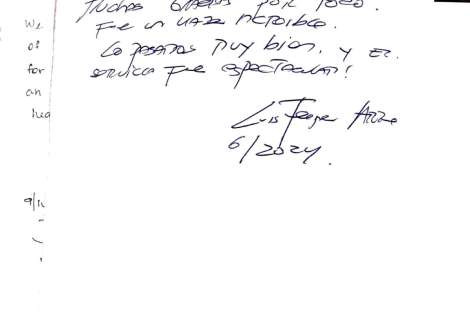 Muchas gracias por todo.
Fue un viaje increible.
Lo pasamos muy bien, y el
servicio fue espectacular!
Luis Felipe
6/2024.
We
of
for
an
9/12